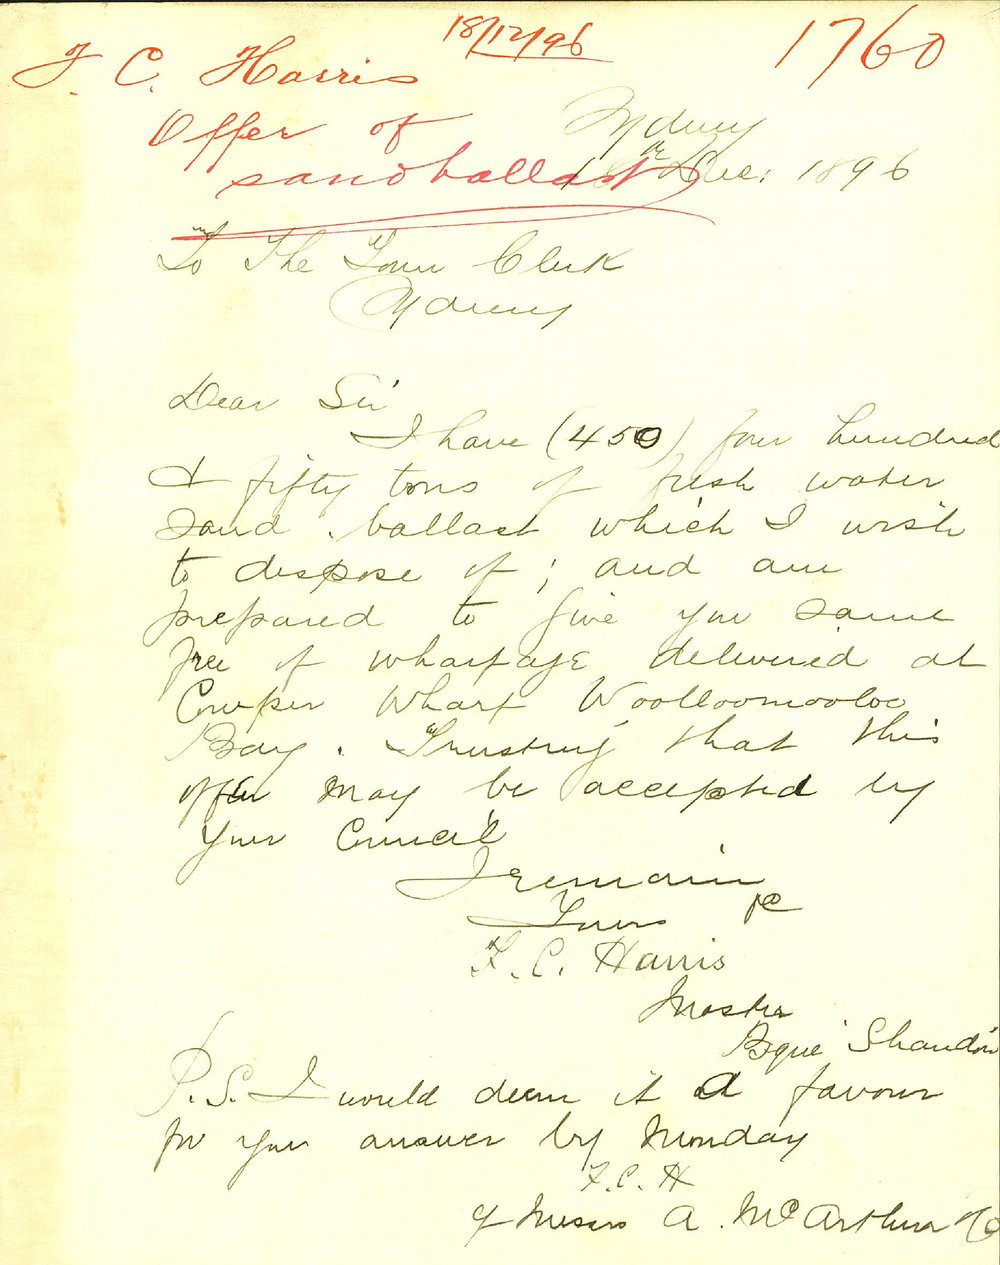 18/12/96
1760
F. C. Harris
Offer of
sandballast
Sydney
Dec: 1896
To The Town Clerk
Sydney
Dear Sir
I have (450) four hundred
& fifty tons of fresh water
sand ballast which I wish
to dispose of; and am
prepared to give you same
free of wharfage delivered at
Cowper Wharf Woolloomooloo
Bay. Trusting that this
offer may be accepted by
your Council
I remain
Yours &c
F. C. Harris
Master
Bqne "Shandon"
P.S. I would deem it a favour
for your answer by Monday
F.C.H
Messrs A. McArthur & Co